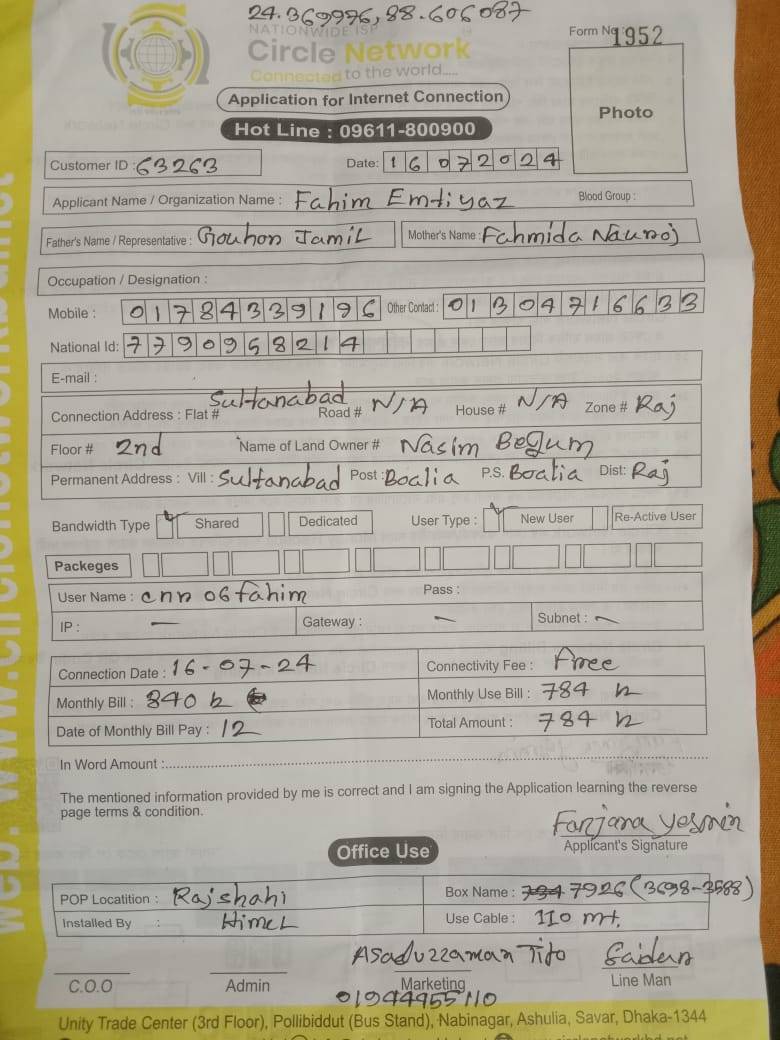 24.369976, 88.606087
NATIONWIDE ISP
Circle Network
Connected to the world.....
Form No 1952
Application for Internet Connection
Photo
Hot Line : 09611-800900
Customer ID : 63263
Date: 16072024
Applicant Name / Organization Name : Fahim Emtiyaz Blood Group :
Father's Name / Representative : Gouhon Jamil Mother's Name : Fahmida Nauroj
Occupation / Designation :
Mobile : 01784339196 Other Contact : 01304716633
National Id: 7790958214
E-mail :
Connection Address : Flat # Sultanabad Road # N/A House # N/A Zone # Raj
Floor # 2nd Name of Land Owner # Nasim Begum
Permanent Address : Vill : Sultanabad Post : Boalia P.S. Boalia Dist: Raj
Bandwidth Type Shared Dedicated User Type : New User Re-Active User
Packeges
User Name : cnn06fahim Pass :
IP : — Gateway : — Subnet : —
Connection Date : 16-07-24 Connectivity Fee : Free
Monthly Bill : 840 Monthly Use Bill : 784
Date of Monthly Bill Pay : 12 Total Amount : 784
In Word Amount :
The mentioned information provided by me is correct and I am signing the Application learning the reverse
page terms & condition.
Farjana Yesmin
Applicant's Signature
Office Use
POP Locatition : Rajshahi Box Name : 7926 (3698-3588)
Installed By : Himel Use Cable : 110 mt.
Asaduzzaman Tito
C.O.O Admin Marketing Line Man
01944955110
Unity Trade Center (3rd Floor), Pollibiddut (Bus Stand), Nabinagar, Ashulia, Savar, Dhaka-1344